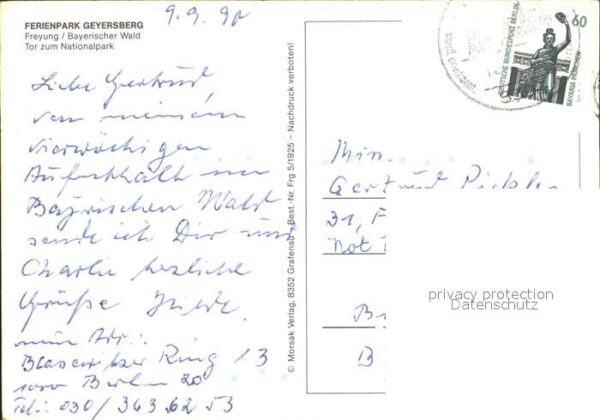 FERIENPARK GEYERSBERG
Freyung / Bayerischer Wald
Tor zum Nationalpark
9.9.90
Liebe Gertrud,
von meinem
vierwöchigen
Aufenthalt im
Bayrischen Wald
sende ich Dir und
Charlie herzliche
Grüße Hilde.
Ring 13
Berlin 20
Tel.: 030/ 363 62 53
© Morsak Verlag, 8352 Grafenau · Best.-Nr. Frg 5/1925 – Nachdruck verboten!
60
DEUTSCHE BUNDESPOST BERLIN
BAVARIA MÜNCHEN
Gertrud
31, F
Not
B
privacy protection
Datenschutz